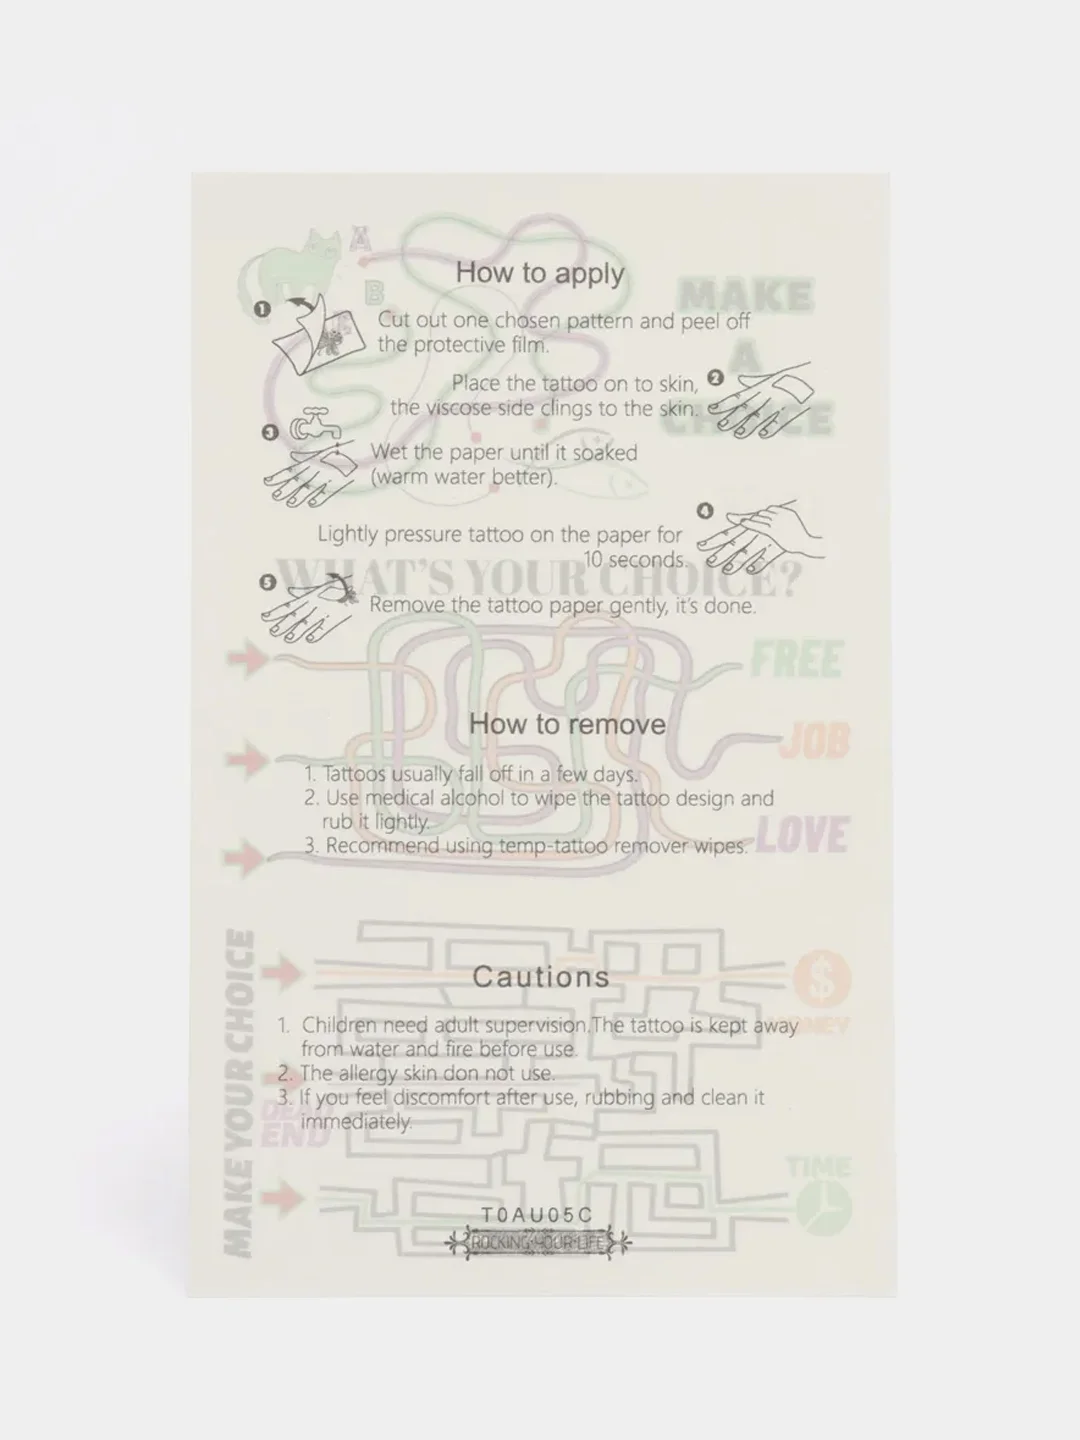 A
B
How to apply
MAKE
A
CHOICE
1
Cut out one chosen pattern and peel off
the protective film.
Place the tattoo on to skin,
the viscose side clings to the skin.
2
3
Wet the paper until it soaked
(warm water better).
Lightly pressure tattoo on the paper for
10 seconds.
4
WHAT'S YOUR CHOICE?
5
Remove the tattoo paper gently, it's done.
FREE
JOB
LOVE
How to remove
1. Tattoos usually fall off in a few days.
2. Use medical alcohol to wipe the tattoo design and
rub it lightly.
3. Recommend using temp-tattoo remover wipes.
MAKE YOUR CHOICE
$
MONEY
Cautions
1. Children need adult supervision.The tattoo is kept away
from water and fire before use.
2. The allergy skin don not use.
3. If you feel discomfort after use, rubbing and clean it
immediately.
DEAD
END
TIME
T0AU05C
ROCKING·YOUR·LIFE